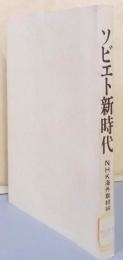 ソビエト新時代
NHK海外取材班